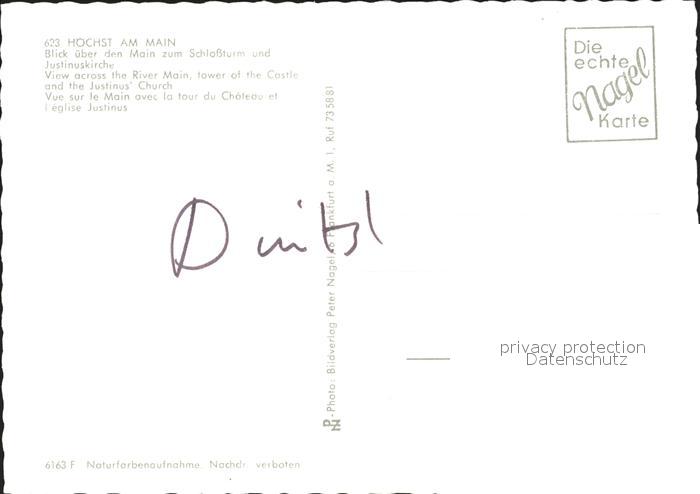 623 HÖCHST AM MAIN
Blick über den Main zum Schloßturm und
Justinuskirche
View across the River Main, tower of the Castle
and the Justinus' Church
Vue sur le Main avec la tour du Château et
l'église Justinus
Die
echte
Nagel
Karte
-Photo: Bildverlag Peter Nagel, Frankfurt a. M. 1, Ruf 735881
privacy protection
Datenschutz
6163 F Naturfarbenaufnahme. Nachdr. verboten